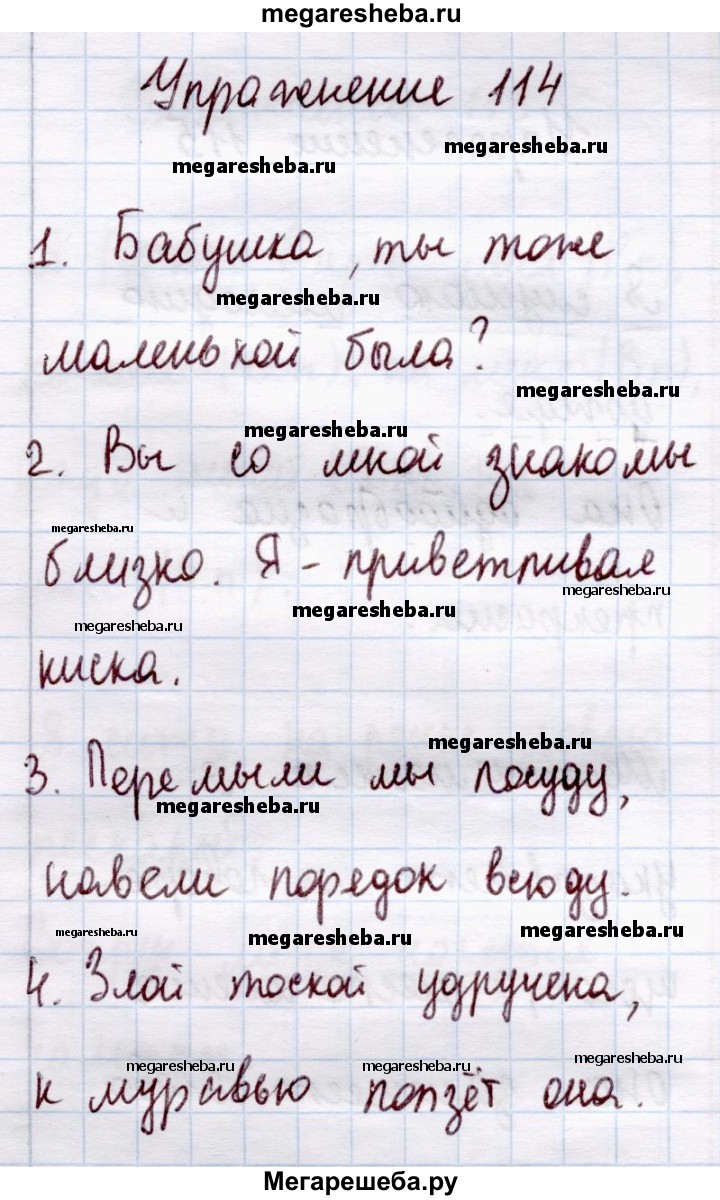 megaresheba.ru
Упражнение 114
megaresheba.ru
megaresheba.ru
1. Бабушка, ты тоже
megaresheba.ru
маленькой была?
megaresheba.ru
megaresheba.ru
2. Вы со мной знакомы
megaresheba.ru
близко. Я - приветливая
megaresheba.ru
megaresheba.ru
megaresheba.ru
киска.
megaresheba.ru
3. Перемыли мы посуду,
megaresheba.ru
навели порядок всюду.
megaresheba.ru
megaresheba.ru
megaresheba.ru
4. Злой тоской удручена,
megaresheba.ru
megaresheba.ru
megaresheba.ru
к муравью ползёт она.
Мегарешеба.ру